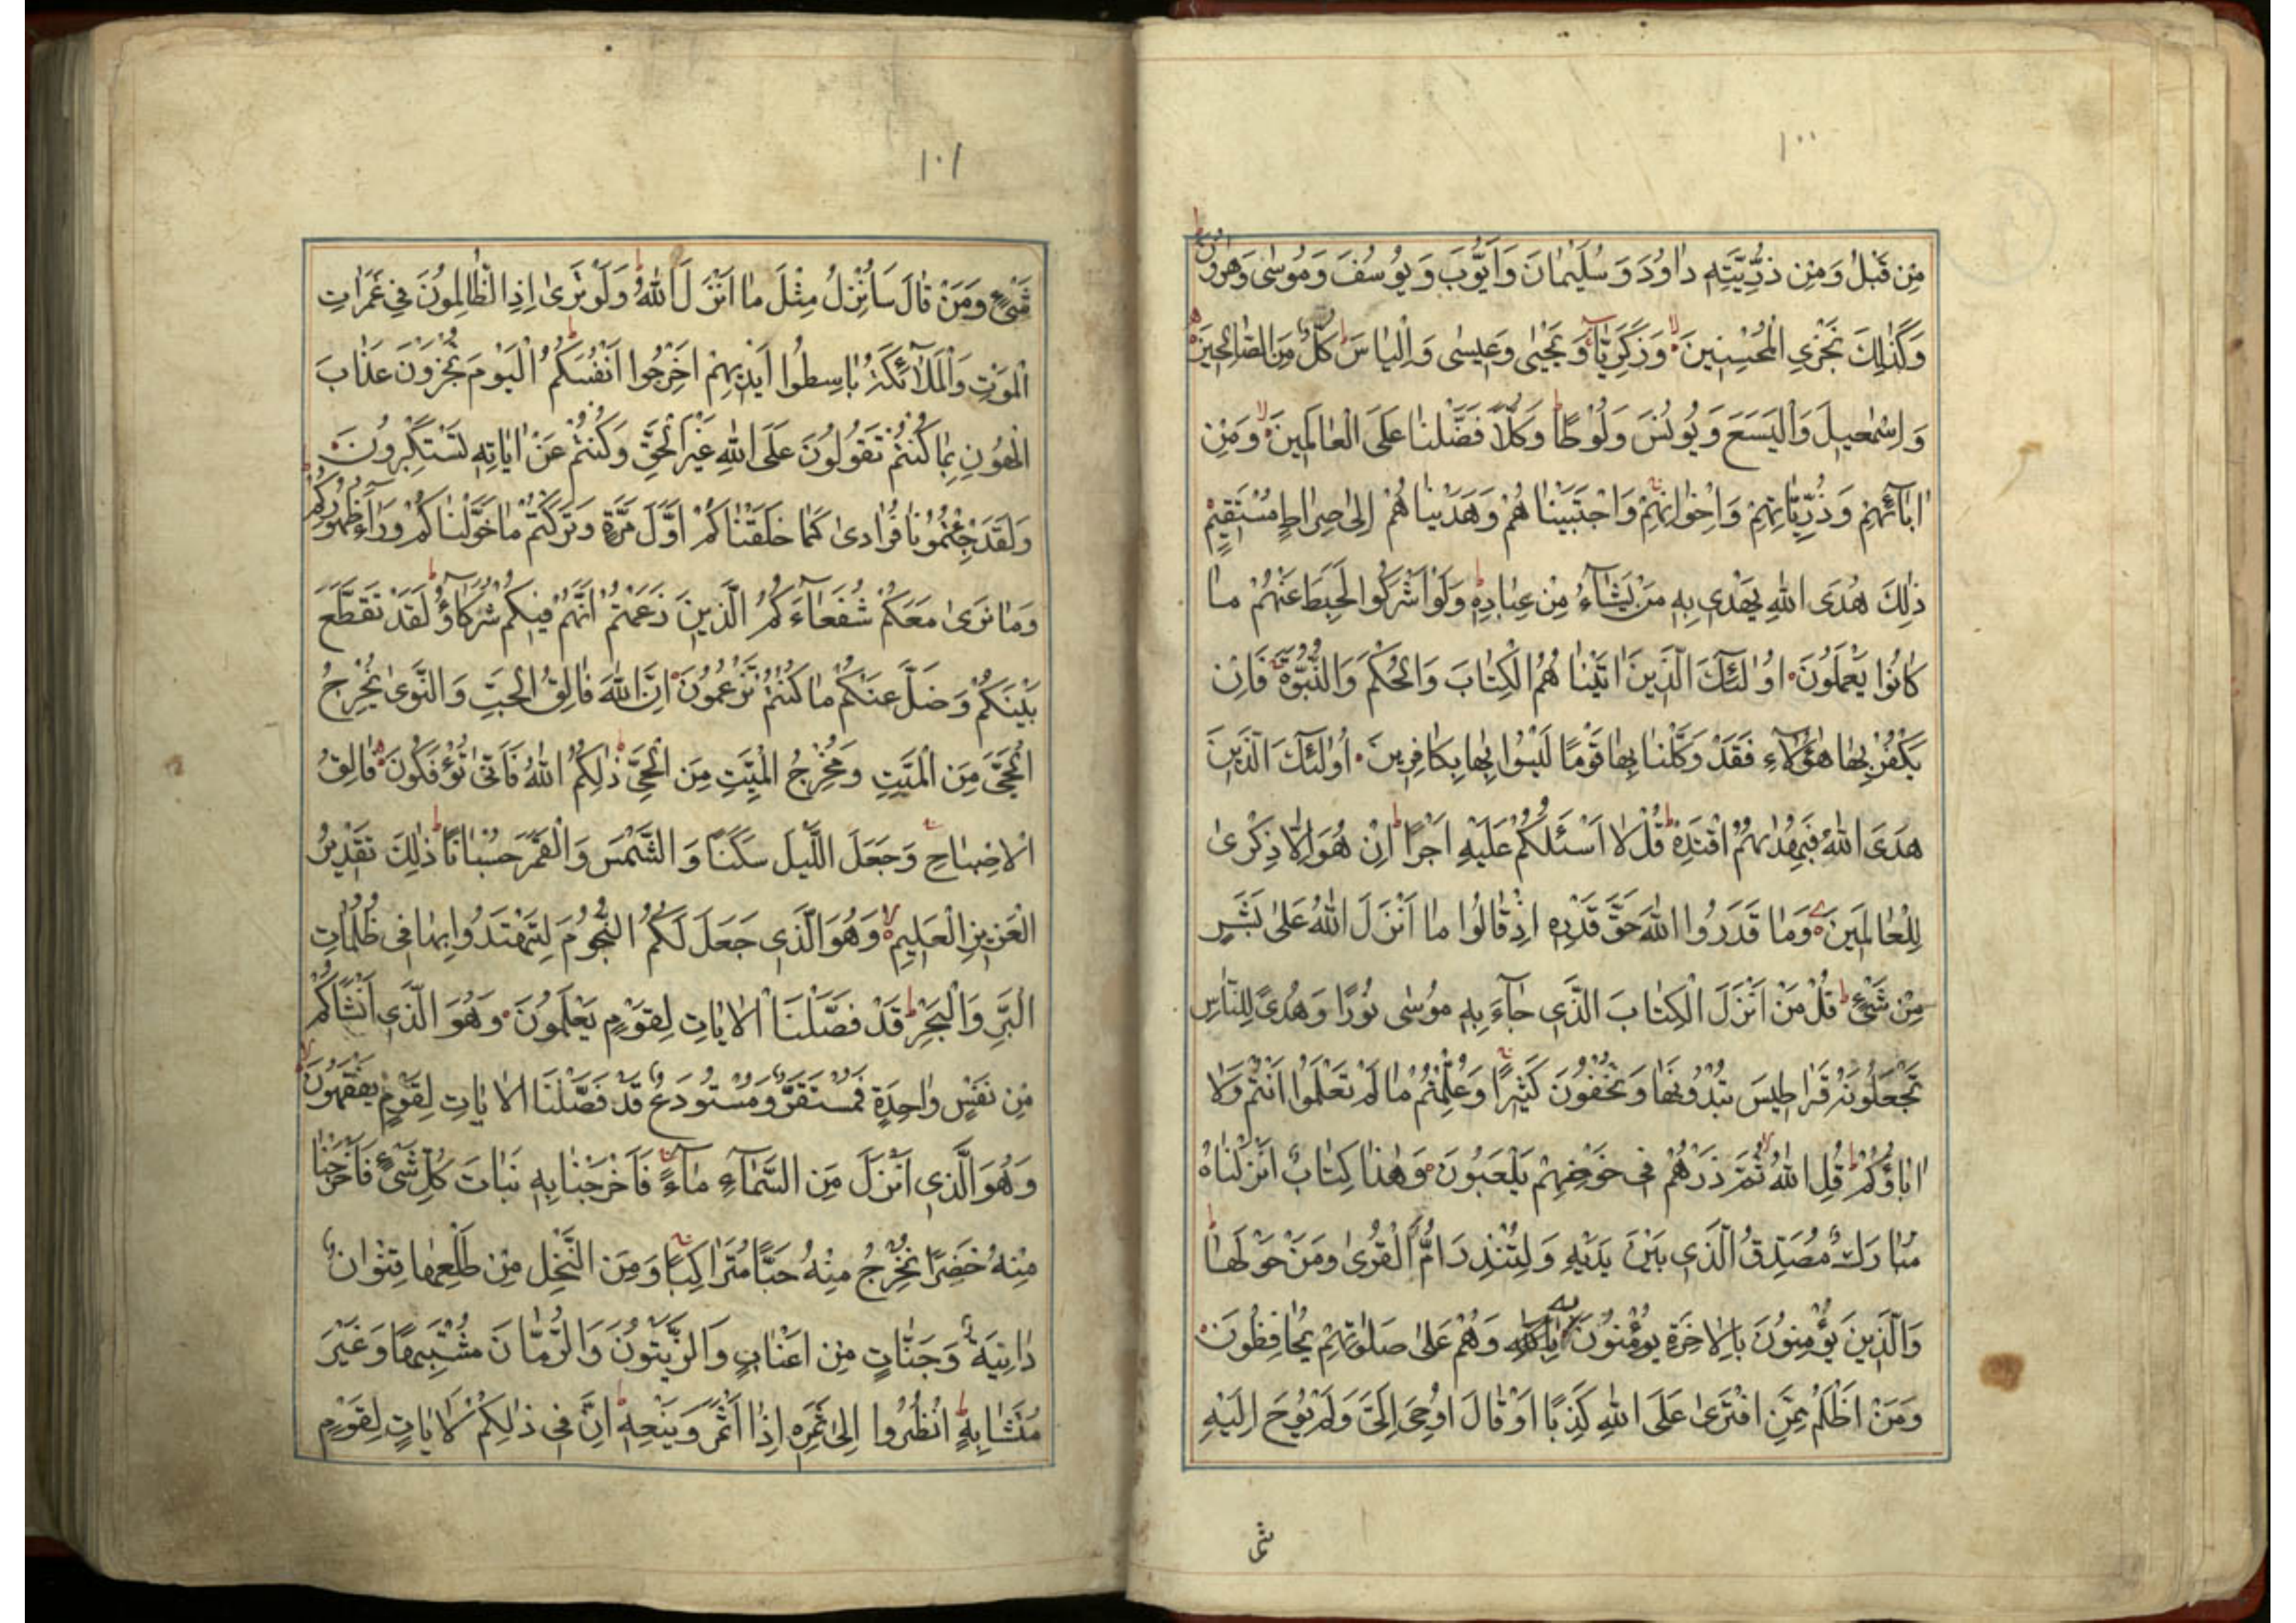 ١٠٠
مِنْ قَبْلُ وَمِنْ ذُرِّيَّتِهِ دَاوُدَ وَسُلَيْمَانَ وَأَيُّوبَ وَيُوسُفَ وَمُوسٰى وَهٰرُونَ
وَكَذٰلِكَ نَجْزِي الْمُحْسِنِينَ وَزَكَرِيَّا وَيَحْيٰى وَعِيسٰى وَإِلْيَاسَ كُلٌّ مِنَ الصَّالِحِينَ
وَإِسْمٰعِيلَ وَالْيَسَعَ وَيُونُسَ وَلُوطًا وَكُلًّا فَضَّلْنَا عَلَى الْعَالَمِينَ وَمِنْ
اٰبَآئِهِمْ وَذُرِّيَّاتِهِمْ وَإِخْوَانِهِمْ وَاجْتَبَيْنَاهُمْ وَهَدَيْنَاهُمْ إِلٰى صِرَاطٍ مُسْتَقِيمٍ
ذٰلِكَ هُدَى اللّٰهِ يَهْدِي بِهِ مَنْ يَشَآءُ مِنْ عِبَادِهِ وَلَوْ أَشْرَكُوا لَحَبِطَ عَنْهُمْ مَا
كَانُوا يَعْمَلُونَ أُولٰئِكَ الَّذِينَ اٰتَيْنَاهُمُ الْكِتَابَ وَالْحُكْمَ وَالنُّبُوَّةَ فَإِنْ
يَكْفُرْ بِهَا هٰؤُلَآءِ فَقَدْ وَكَّلْنَا بِهَا قَوْمًا لَيْسُوا بِهَا بِكَافِرِينَ أُولٰئِكَ الَّذِينَ
هَدَى اللّٰهُ فَبِهُدٰىهُمُ اقْتَدِهْ قُلْ لَا أَسْئَلُكُمْ عَلَيْهِ أَجْرًا إِنْ هُوَ إِلَّا ذِكْرٰى
لِلْعَالَمِينَ وَمَا قَدَرُوا اللّٰهَ حَقَّ قَدْرِهِ إِذْ قَالُوا مَا أَنْزَلَ اللّٰهُ عَلٰى بَشَرٍ
مِنْ شَيْءٍ قُلْ مَنْ أَنْزَلَ الْكِتَابَ الَّذِي جَآءَ بِهِ مُوسٰى نُورًا وَهُدًى لِلنَّاسِ
تَجْعَلُونَهُ قَرَاطِيسَ تُبْدُونَهَا وَتُخْفُونَ كَثِيرًا وَعُلِّمْتُمْ مَا لَمْ تَعْلَمُوا أَنْتُمْ وَلَا
اٰبَاؤُكُمْ قُلِ اللّٰهُ ثُمَّ ذَرْهُمْ فِي خَوْضِهِمْ يَلْعَبُونَ وَهٰذَا كِتَابٌ أَنْزَلْنَاهُ
مُبَارَكٌ مُصَدِّقُ الَّذِي بَيْنَ يَدَيْهِ وَلِتُنْذِرَ أُمَّ الْقُرٰى وَمَنْ حَوْلَهَا
وَالَّذِينَ يُؤْمِنُونَ بِالْاٰخِرَةِ يُؤْمِنُونَ بِهِ وَهُمْ عَلٰى صَلٰوتِهِمْ يُحَافِظُونَ
وَمَنْ أَظْلَمُ مِمَّنِ افْتَرٰى عَلَى اللّٰهِ كَذِبًا أَوْ قَالَ أُوحِيَ إِلَيَّ وَلَمْ يُوحَ إِلَيْهِ
١٠١
شَيْءٌ وَمَنْ قَالَ سَأُنْزِلُ مِثْلَ مَا أَنْزَلَ اللّٰهُ وَلَوْ تَرٰى إِذِ الظَّالِمُونَ فِي غَمَرَاتِ
الْمَوْتِ وَالْمَلَآئِكَةُ بَاسِطُوا أَيْدِيهِمْ أَخْرِجُوا أَنْفُسَكُمُ الْيَوْمَ تُجْزَوْنَ عَذَابَ
الْهُونِ بِمَا كُنْتُمْ تَقُولُونَ عَلَى اللّٰهِ غَيْرَ الْحَقِّ وَكُنْتُمْ عَنْ اٰيَاتِهِ تَسْتَكْبِرُونَ
وَلَقَدْ جِئْتُمُونَا فُرَادٰى كَمَا خَلَقْنَاكُمْ أَوَّلَ مَرَّةٍ وَتَرَكْتُمْ مَا خَوَّلْنَاكُمْ وَرَآءَ ظُهُورِكُمْ
وَمَا نَرٰى مَعَكُمْ شُفَعَآءَكُمُ الَّذِينَ زَعَمْتُمْ أَنَّهُمْ فِيكُمْ شُرَكَآؤُ لَقَدْ تَقَطَّعَ
بَيْنَكُمْ وَضَلَّ عَنْكُمْ مَا كُنْتُمْ تَزْعُمُونَ إِنَّ اللّٰهَ فَالِقُ الْحَبِّ وَالنَّوٰى يُخْرِجُ
الْحَيَّ مِنَ الْمَيِّتِ وَمُخْرِجُ الْمَيِّتِ مِنَ الْحَيِّ ذٰلِكُمُ اللّٰهُ فَأَنّٰى تُؤْفَكُونَ فَالِقُ
الْإِصْبَاحِ وَجَعَلَ اللَّيْلَ سَكَنًا وَالشَّمْسَ وَالْقَمَرَ حُسْبَانًا ذٰلِكَ تَقْدِيرُ
الْعَزِيزِ الْعَلِيمِ وَهُوَ الَّذِي جَعَلَ لَكُمُ النُّجُومَ لِتَهْتَدُوا بِهَا فِي ظُلُمَاتِ
الْبَرِّ وَالْبَحْرِ قَدْ فَصَّلْنَا الْاٰيَاتِ لِقَوْمٍ يَعْلَمُونَ وَهُوَ الَّذِي أَنْشَأَكُمْ
مِنْ نَفْسٍ وَاحِدَةٍ فَمُسْتَقَرٌّ وَمُسْتَوْدَعٌ قَدْ فَصَّلْنَا الْاٰيَاتِ لِقَوْمٍ يَفْقَهُونَ
وَهُوَ الَّذِي أَنْزَلَ مِنَ السَّمَآءِ مَآءً فَأَخْرَجْنَا بِهِ نَبَاتَ كُلِّ شَيْءٍ فَأَخْرَجْنَا
مِنْهُ خَضِرًا نُخْرِجُ مِنْهُ حَبًّا مُتَرَاكِبًا وَمِنَ النَّخْلِ مِنْ طَلْعِهَا قِنْوَانٌ
دَانِيَةٌ وَجَنَّاتٍ مِنْ أَعْنَابٍ وَالزَّيْتُونَ وَالرُّمَّانَ مُشْتَبِهًا وَغَيْرَ
مُتَشَابِهٍ انْظُرُوا إِلٰى ثَمَرِهِ إِذَا أَثْمَرَ وَيَنْعِهِ إِنَّ فِي ذٰلِكُمْ لَاٰيَاتٍ لِقَوْمٍ